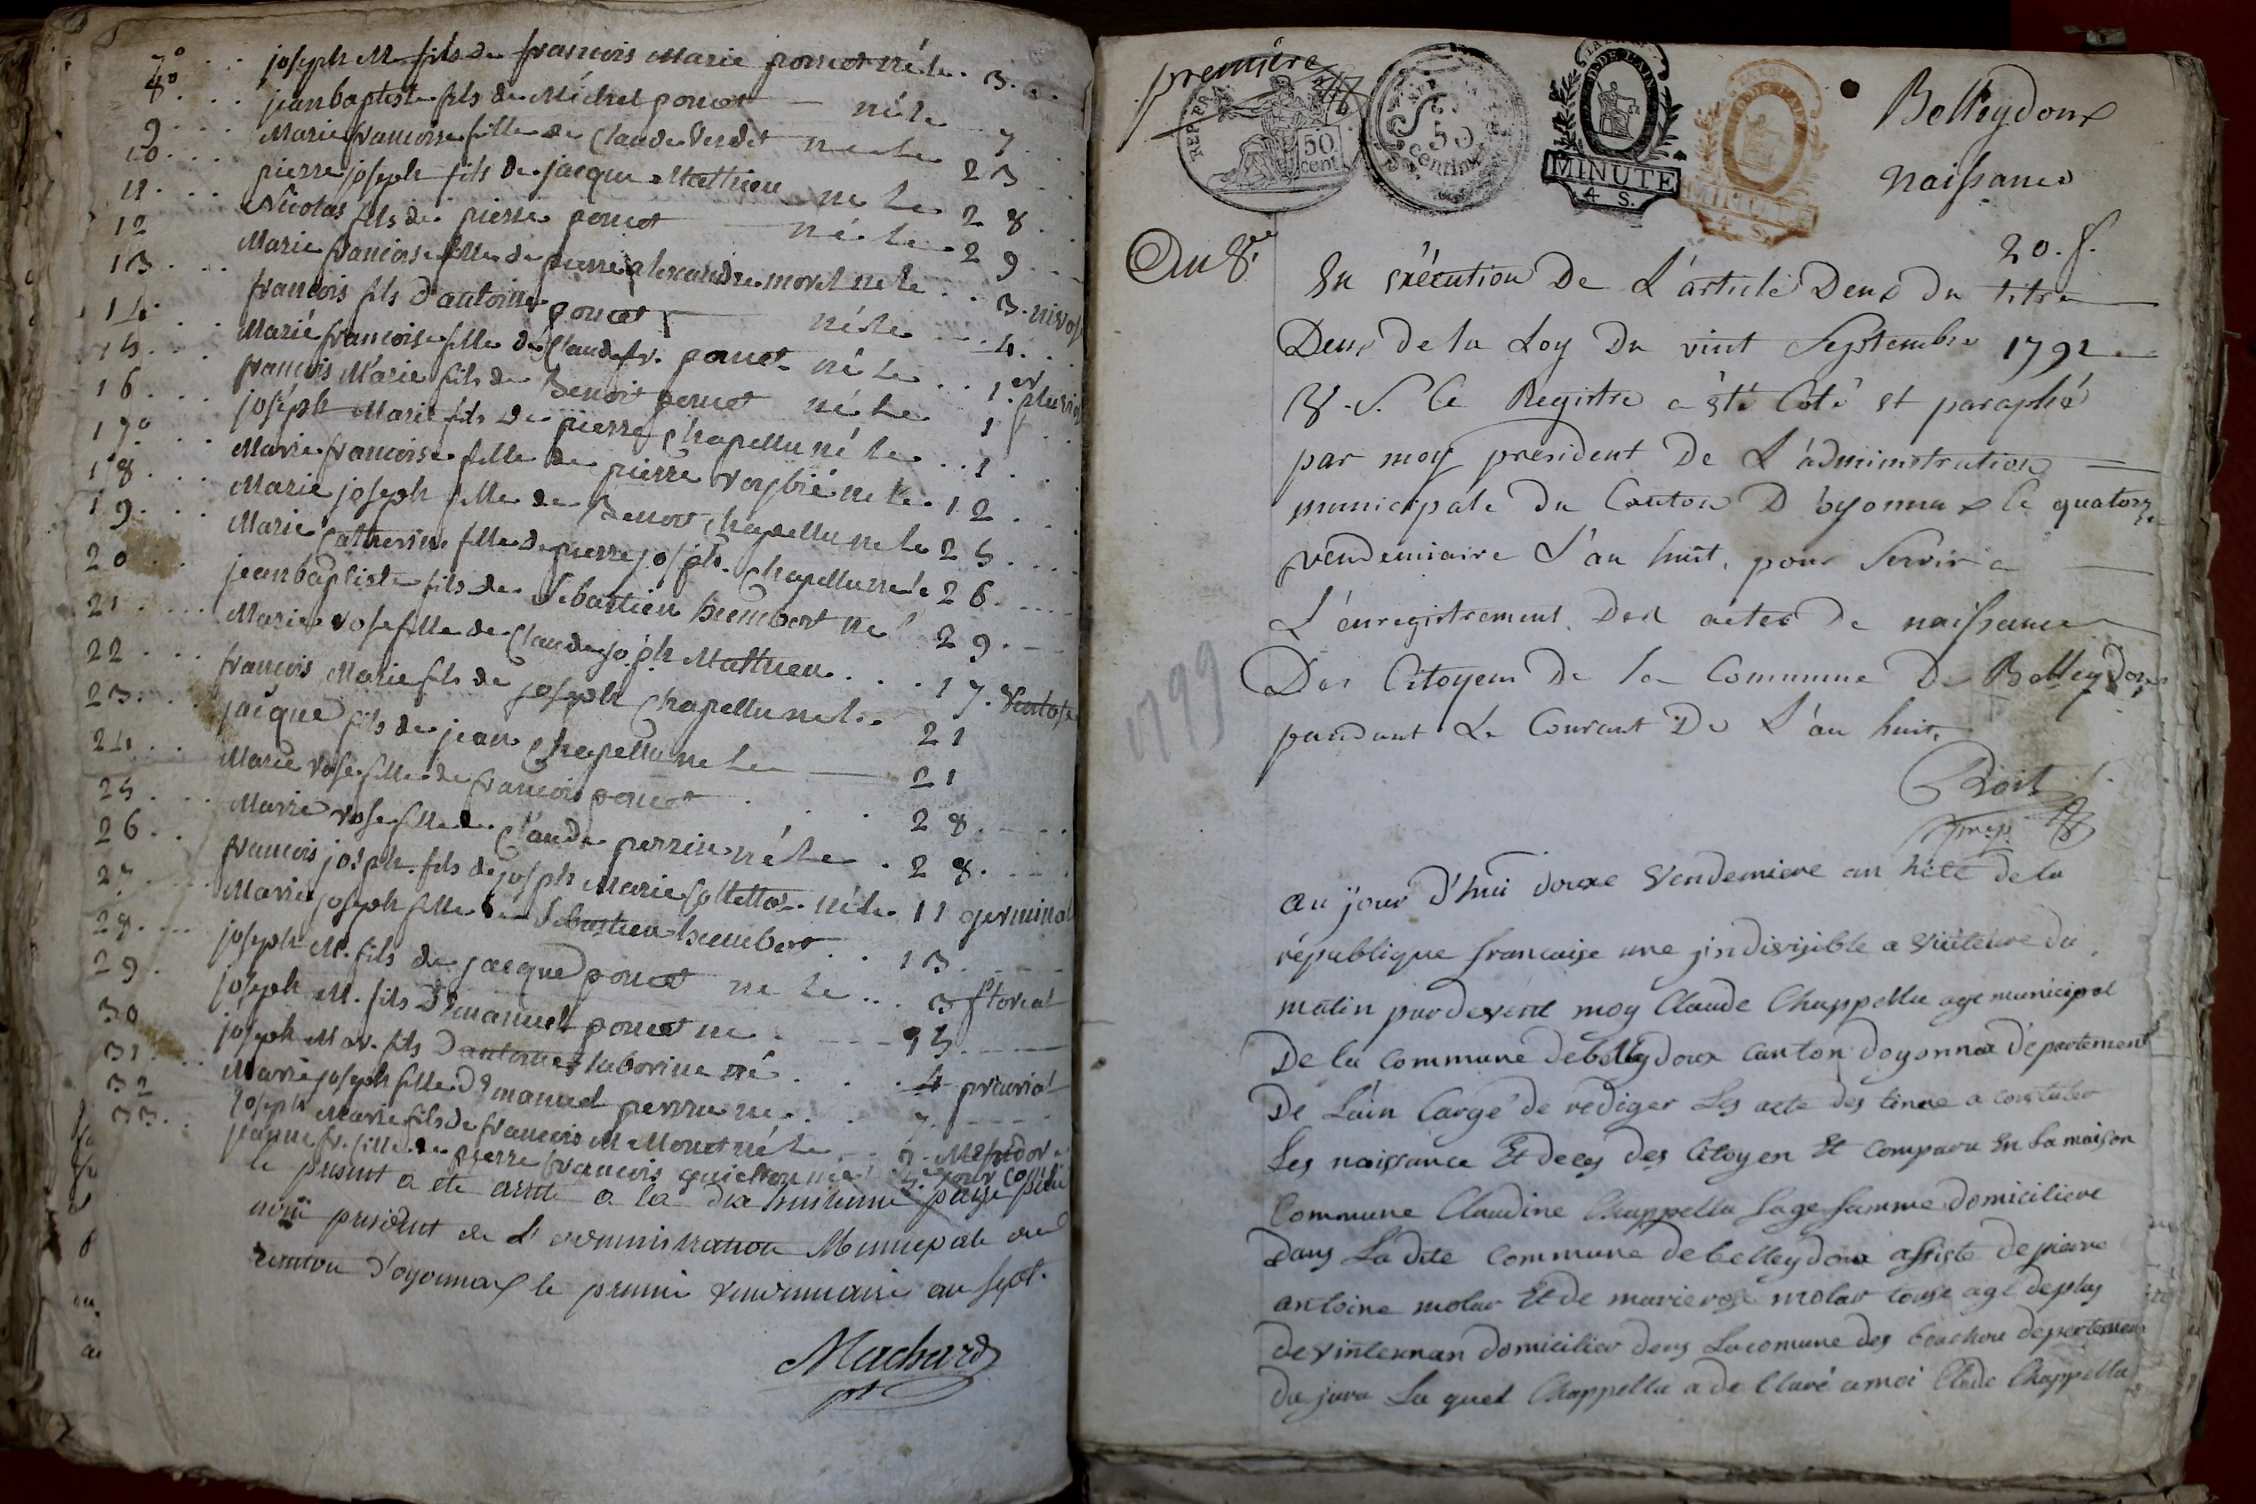 7° joseph M. fils de francois Marie poncet né le 3
8° jean baptiste fils de Michel poncet né le 7
9 Marie francoise fille de Claude Verdet né le 23
10 pierre joseph fils de jacque Mathieu né le 28
11 Nicolas fils de pierre poncet né le 29
12 Marie francoise fille de pierre alexandre morel né le 3 nivose
13 francois fils d'antoine poncet né le 4
14 Marie francoise fille de Claude fr. poncet né le 1er pluvio
15 francois Marie fils de Benoit poncet né le 1
16 joseph Marie fils de pierre Chapellu né le 1
17° Marie francoise fille de pierre né le 12
18 Marie joseph fille de Benoit Chapellu né le 25
19 Marie Catherine fille de pierre joseph Chapellu né le 26
20 jean baptiste fils de Sebastien humbert né 29
21 Marie rose fille de Claude joseph Mathieu 17 Ventose
22 francois Marie fils de joseph Chapellu né le 21
23 jacque fils de jean Chapellu né le 21
24 Marie rose fille de francois poncet 28
25 Marie rose fille de Claude perrin né le 28
26 francois joseph fils de joseph Marie né le 11 germinal
27 Marie joseph fille de Sebastien humbert 13
28 joseph M. fils de jacque poncet né le 3 floreal
29 joseph M. fils d'Emanuel poncet né 15
30 joseph Mar. fils d'antoine né 4 prairial
31 Marie joseph fille d'Emanuel perrin né 7
32 joseph Marie fils de francois M Monet né le Messidor
33 jeanne fr. fille de pierre francois né
le présent a été arrêté a la dix huitieme page par
nous president de l'administration Municipale du
canton d'oyonnax le premier vendemiaire an sept.
Machard
pt
première
REP. FRA.
50 cent
50 Centimes
MINUTE
4 S.
MINUTE
4 S.
Belleydoux
naissance
20. f.
An 8e
En exécution De L'article Deux du titre
Deux de la Loy Du vint Septembre 1792
V.S. Ce Registre a été Coté et paraphé
par moy président De L'administration
municipale du Canton D'oyonnax le quatorze
vendemiaire L'an huit, pour Servir a
L'enregistrement Des actes de naissance
Des Citoyens De la Commune De Belleydoux
pendant Le Courant De L'an huit.
1799
prep
au jour d'hui douxe Vendemiere an hite de la
république francaise une indivisible a
matin pardevent moy Claude Chappellu age municipal
De la commune debelleydoux canton doyonnax departement
De Lain Cargé de rediger Les acte des tinee a constater
Les naissance Et deces des Citoyen Et comparu En la maison
Commune Claudine Chappellu Sage famme domiciliere
dans La dite commune debelleydoux assiste de pierre
antoine molar Et de marierose molar touse agé deplus
devinteunan domicilier dens Lacomune des bouchou departemen
du jura La quel Chappellu a declaré a moi Clode Chappellu